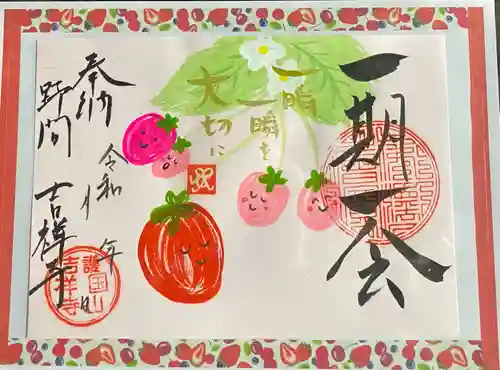 一期一会
一瞬
一瞬を
大切に
奉納
令和 年 日
野間 吉祥寺
護国山
吉祥寺